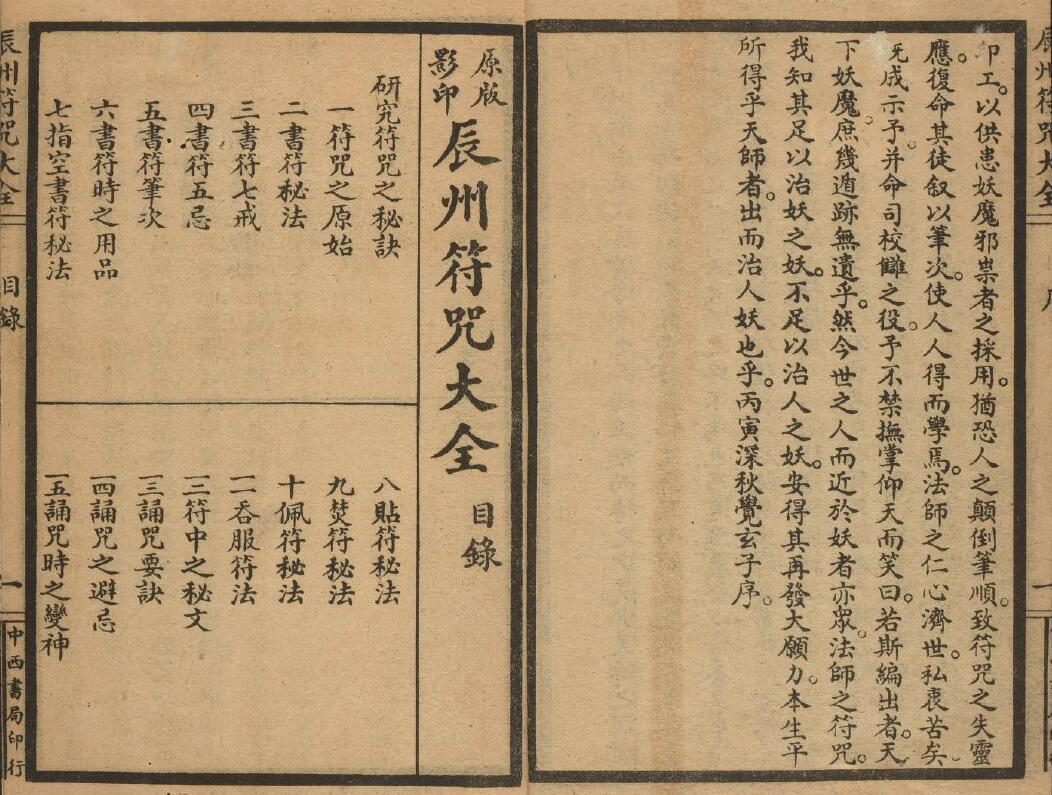 辰州符咒大全
序
一
印工。以供患妖魔邪祟者之採用。猶恐人之顛倒筆順。致符咒之失靈
應。復命其徒叙以筆次。使人人得而學焉。法師之仁心濟世。私衷苦矣。
既成示予。并命司校讎之役。予不禁撫掌仰天而笑曰。若斯編出者。天
下妖魔。庶幾遁跡無遺乎。然今世之人而近於妖者亦眾。法師之符咒。
我知其足以治妖之妖。不足以治人之妖。安得其再發大願力。本生平
所得乎天師者。出而治人妖也乎。丙寅深秋覺玄子序。
原版
影印
辰州符咒大全
目錄
研究符咒之秘訣
一符咒之原始
二書符秘法
三書符七戒
四書符五忌
五書符筆次
六書符時之用品
七指空書符秘法
八貼符秘法
九焚符秘法
十佩符秘法
一一吞服符法
一二符中之秘文
一三誦咒要訣
一四誦咒之避忌
一五誦咒時之變神
辰州符咒大全
目錄
一
中西書局印行